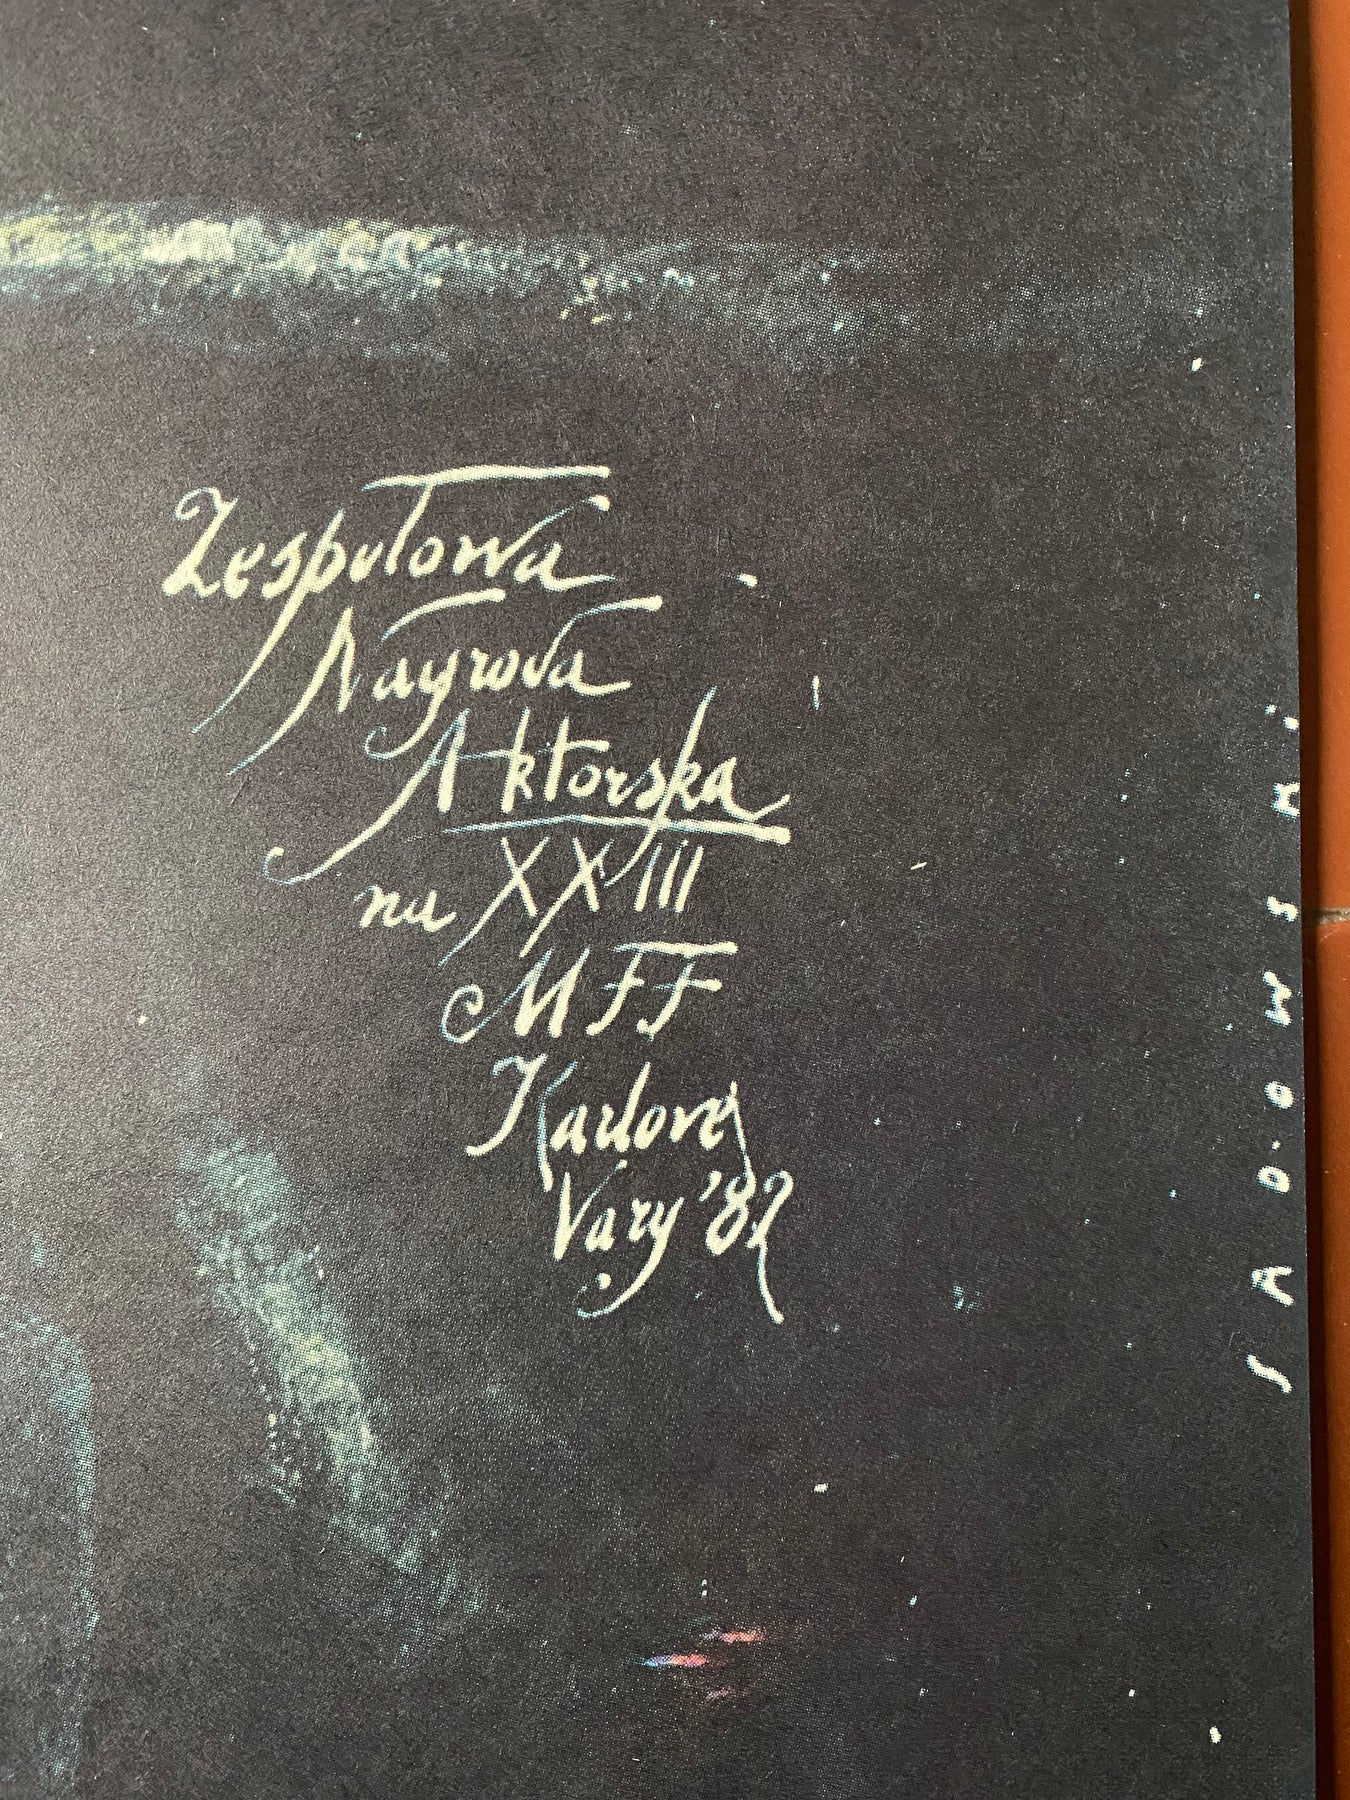 Zespołowa
Nagroda
Aktorska
na XXIII
MFF
Karlovy
Vary '82
SADOWSKI.